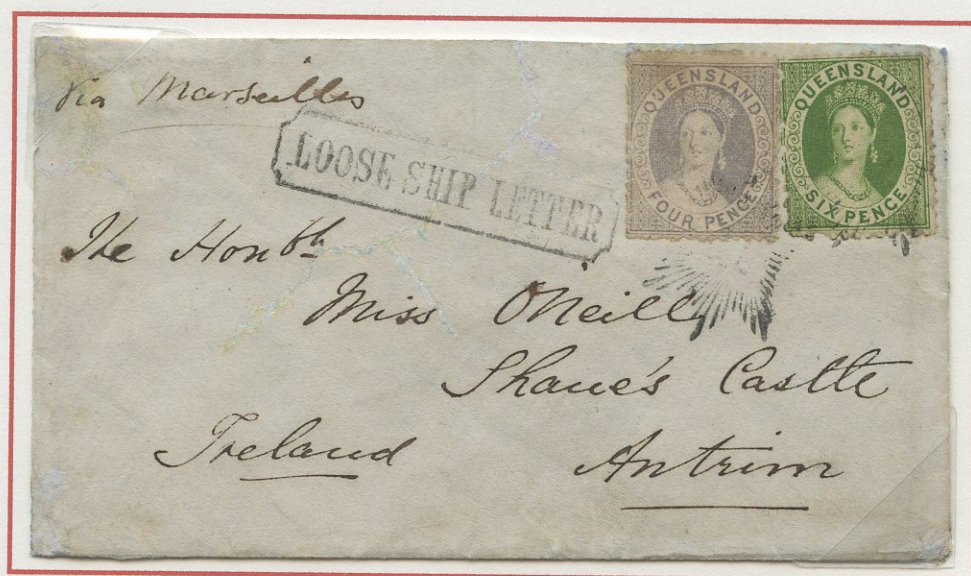 via Marseilles
LOOSE SHIP LETTER
QUEENSLAND
FOUR PENCE
QUEENSLAND
SIX PENCE
The Honbl
Miss O'Neill
Shane's Castle
Antrim
Ireland